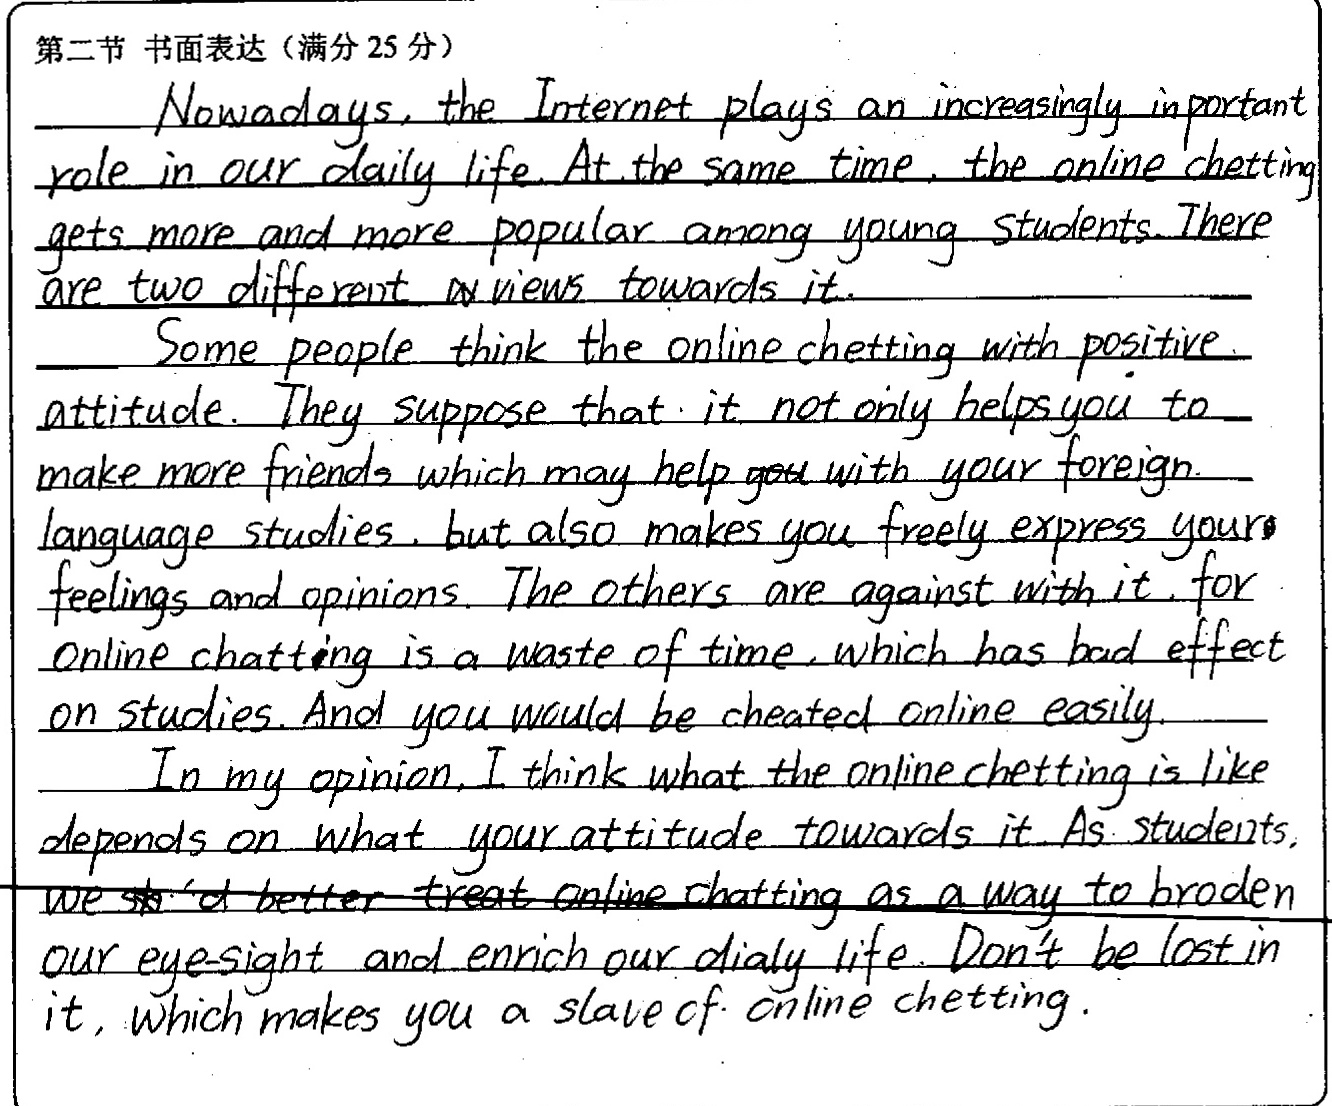 第二节 书面表达（满分 25 分）
Nowadays, the Internet plays an increasingly inportant
role in our daily life. At the same time, the online chetting
gets more and more popular among young students. There
are two different views towards it.
Some people think the online chetting with positive
attitude. They suppose that it not only helps you to
make more friends which may help you with your foreign
language studies, but also makes you freely express your
feelings and opinions. The others are against with it, for
online chatting is a waste of time, which has bad effect
on studies. And you would be cheated online easily.
In my opinion, I think what the online chetting is like
depends on what your attitude towards it. As students,
we 'd better treat online chatting as a way to broden
our eye-sight and enrich our dialy life. Don't be lost in
it, which makes you a slave of online chetting.